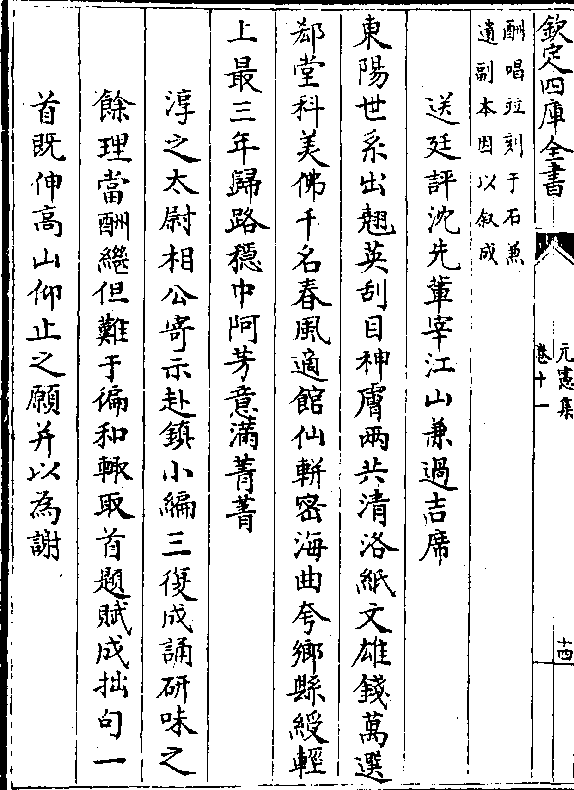 欽定四庫全書
元憲集
卷十一
十四
酬唱並刻于石兼
遺副本因以叙成
送廷評沈先輩宰江山兼過吉席
東陽世系出翹英刮目神膚兩共清洛紙文雄錢萬選
郄堂科美佛千名春風適館仙輧密海曲夸鄉縣綬輕
上最三年歸路穏中阿芳意滿菁菁
淳之太尉相公寄示赴鎮小編三復成誦研味之
餘理當酬繼但難于偏和輙取首題賦成拙句一
首既伸高山仰止之願并以為謝